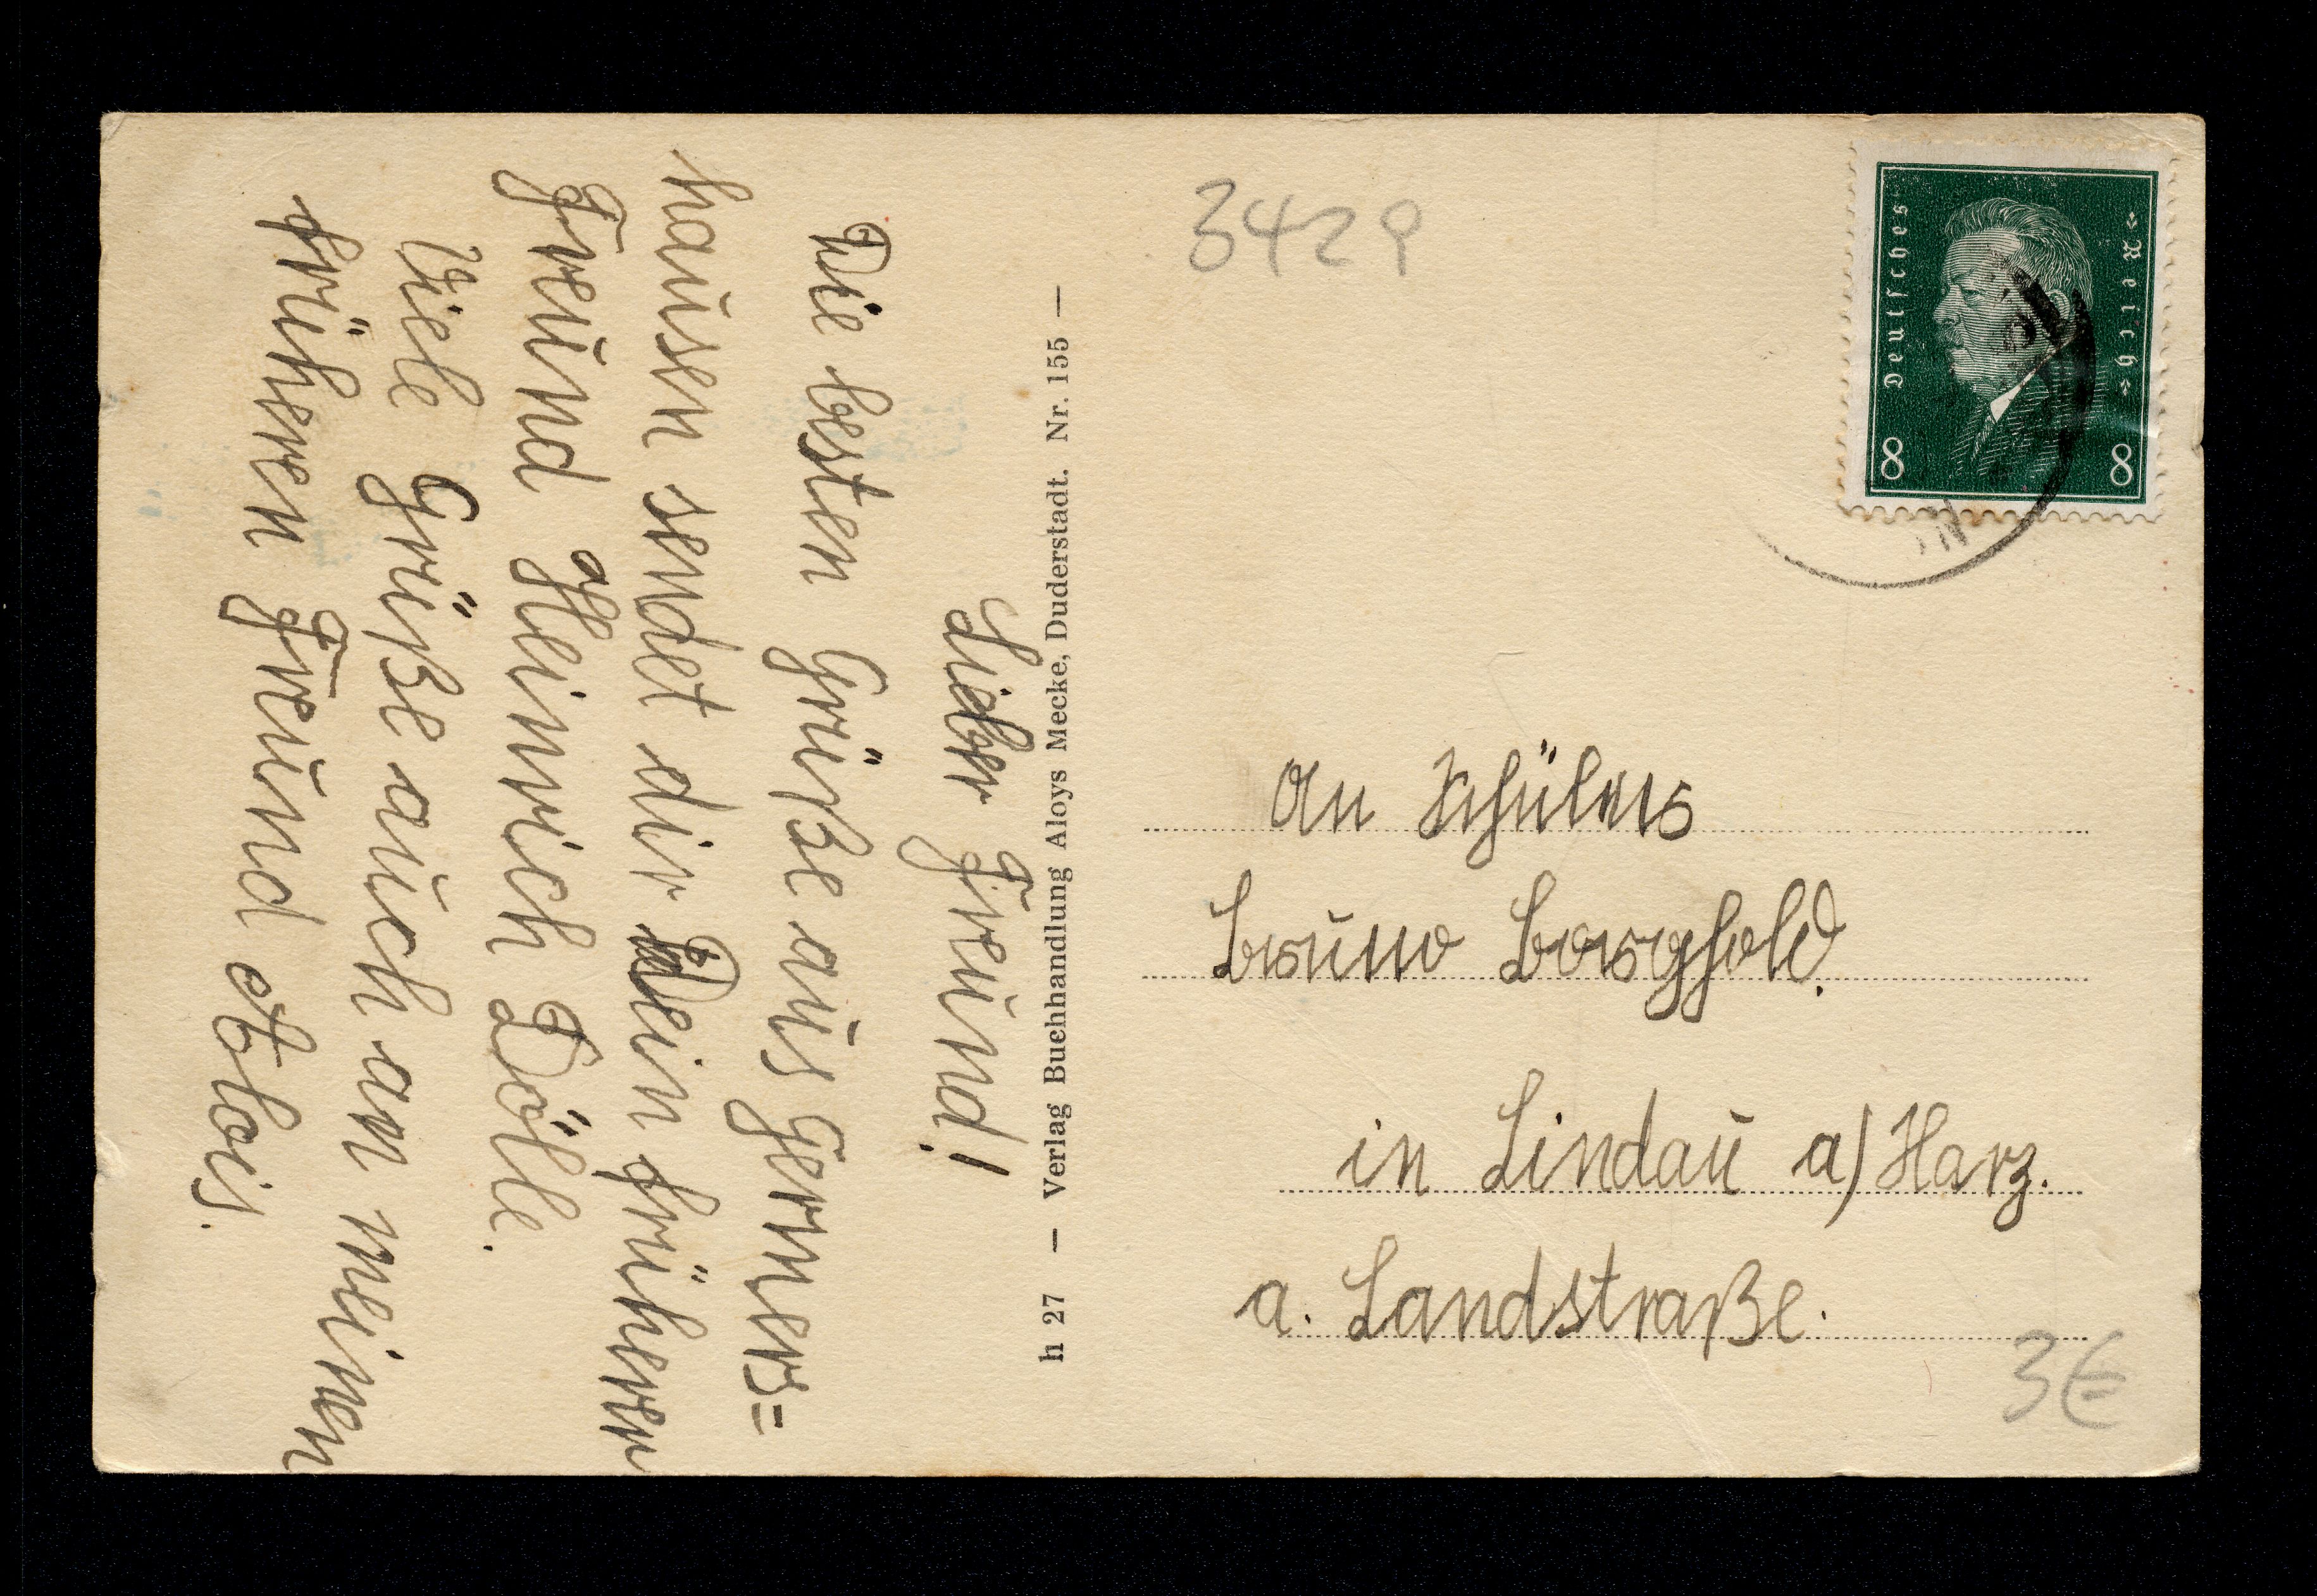 Lieber Freund!
Die besten Grüße aus Germers=
hausen sendet dir Dein früherer
Freund Heinrich Dölle.
Viele Grüße auch an meinen
früheren Freund Alois.
h 27 — Verlag Buchhandlung Aloys Mecke, Duderstadt. Nr. 155 —
3429
Deutsches
»Reich«
8 8
An Schülers
Bruno Borghold.
in Lindau a/Harz.
a. Landstraße.
3€